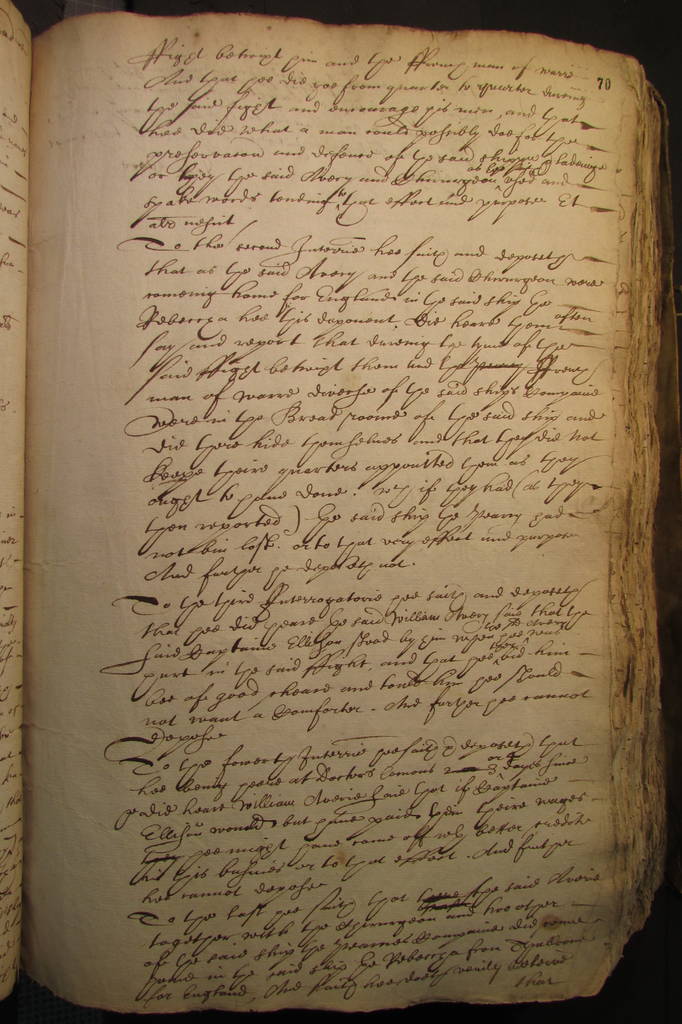 70
ffight betwixt him and the ffrench man of warre
And that hee did goe from quarter to quarter during
the said fight and encourage his men, and that
hee did what a man could possibly doe for the
preservacon and defence of the said shipp and ladeinge
or they the said Avery and Chirurgeon as he saith used and
spake words tending to that effect and purpose Et
alr nescit
To the second Interrie hee saith and deposeth
that as the said Avery and the said Chirurgeon were
comeing home for England in the said ship the
Rebeccha hee this deponent did heare them often
say and report that dureing the tyme of the
said ffight betwixt them and the ffrench
man of warre diverse of the said ships Companie
were in the Bread roome of the said ship and
did there hide themselves and that they did not
keepe theire quarters appointed them as they
ought to have done. wch if they had (as they
then reported) the said ship the had
not bin lost. or to that very effect and purpose
And further he deposeth not.
To the third Interrogatorie hee saith and deposeth
that hee did heare the said William Avery saie that the
said Captaine Ellison stood by him when the sd Avery hee was
hurt in the said ffight, and that hee then bid him
bee of good cheare and told him hee should
not want a Comforter. And further hee cannot
depose
To the fowerth Interrie hee saith & deposeth that
hee being here at Doctors Comons or 3 dayes since
did heare William Averie saie that if Captaine
Ellison would but have paid him theire wages
hee might have come off wth better creditt
in this busines or to that effect. And further
hee cannot depose
To the last hee saith that the said Averie
together with the Chirurgeon and two other
of the said ship the Companie did come
home in the said ship the Rebeccha from
for England, And saith hee doth verily beleeve
that